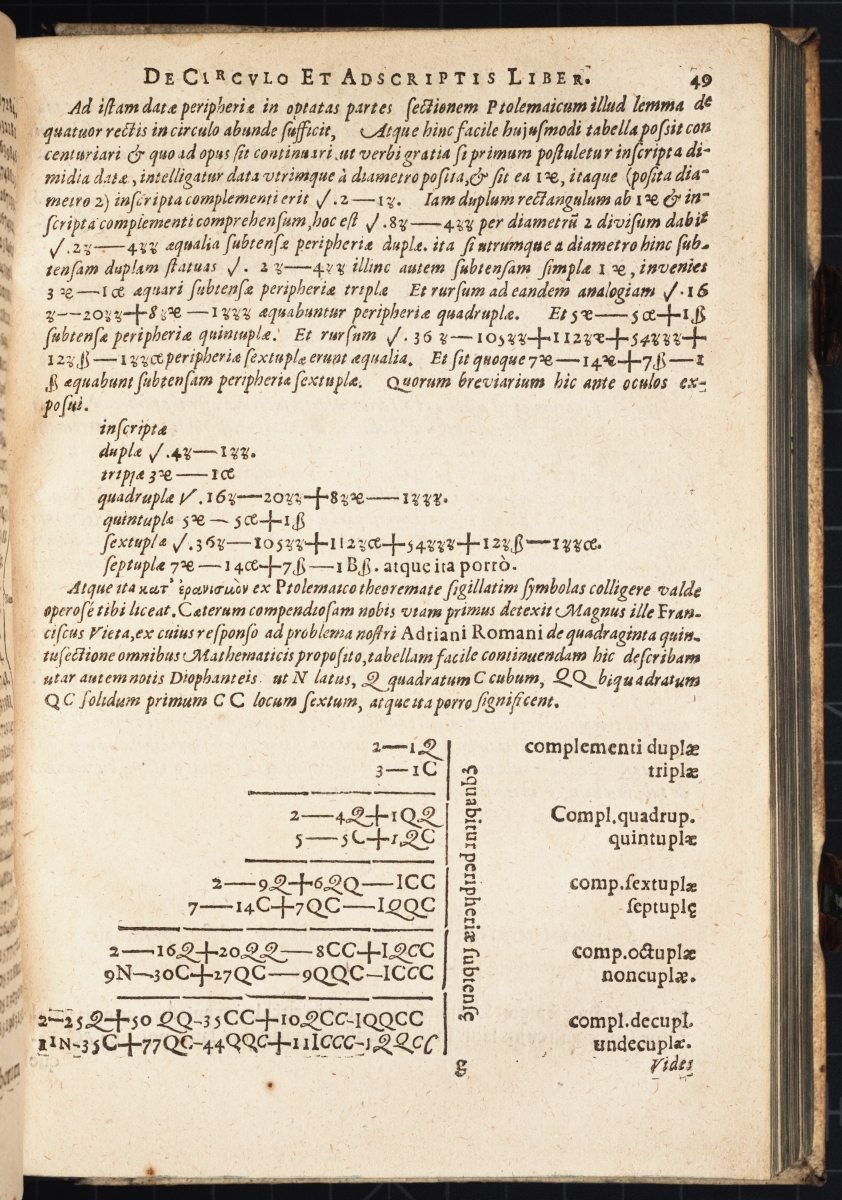 DE CIRCVLO ET ADSCRIPTIS LIBER. 49
Ad istam datæ peripheriæ in optatas partes sectionem Ptolemaicum illud lemma de
quatuor rectis in circulo abunde sufficit, Atque hinc facile hujusmodi tabella possit con
centuriari & quo ad opus sit continuari ut verbi gratia si primum postuletur inscripta di-
midia datæ, intelligatur data vtrimque à diametro posita, & sit ea 1ꝛe, itaque (posita dia-
metro 2) inscripta complementi erit √.2—1ʒ. Iam duplum rectangulum ab 1ꝛe & in-
scripta complementi comprehensum, hoc est √.8ʒ—4ʒʒ per diametrũ 2 divisum dabit
√.2ʒ—4ʒʒ æqualia subtensæ peripheriæ duplæ. ita si utrumque a diametro hinc sub-
tensam duplam statuas √. 2ʒ—4ʒʒ illinc autem subtensam simplæ 1 ꝛe, invenies
3 ꝛe—1ce æquari subtensæ peripheriæ triplæ Et rursum ad eandem analogiam √.16
ʒ--20ʒʒ+8ʒꝛe—1ʒʒʒ æquabuntur peripheriæ quadruplæ. Et 5ꝛe—5ce+1ß
subtensæ peripheriæ quintuplæ. Et rursum √.36ʒ—105ʒʒ+112ʒꝛe+54ʒʒʒ+
12ʒß—1ʒʒce peripheriæ sextuplæ erunt æqualia. Et sit quoque 7ꝛe—14ꝛe+7ß—1
ß æquabunt subtensam peripheriæ sextuplæ. Quorum breviarium hic ante oculos ex-
posui.
inscriptæ
duplæ √.4ʒ—1ʒʒ.
triplæ 3ꝛe—1ce
quadruplæ √.16ʒ—20ʒʒ+8ʒꝛe—1ʒʒʒ.
quintuplæ 5ꝛe—5ce+1ß
sextuplæ √.36ʒ—105ʒʒ+112ʒce+54ʒʒʒ+12ʒß—1ʒʒce.
septuplæ 7ꝛe—14ce+7ß—1Bß. atque ita porrò.
Atque ita κατ' ἐρανισμὸν ex Ptolemaico theoremate sigillatim symbolas colligere valde
operosè tibi liceat. Cæterum compendiosam nobis viam primus detexit Magnus ille Fran-
ciscus Vieta, ex cuius responso ad problema nostri Adriani Romani de quadraginta quin-
tusectione omnibus Mathematicis proposito, tabellam facile continuendam hic describam
utar autem notis Diophanteis. ut N latus, Q quadratum C cubum, QQ biquadratum
QC solidum primum CC locum sextum, atque ita porro significent.
2—1Q complementi duplæ
3—1C triplæ
2—4Q+1QQ Compl.quadrup.
5—5C+1QC quintuplæ
2—9Q+6QQ—1CC comp.sextuplæ
7—14C+7QC—1QQC septuplę
2—16Q+20QQ—8CC+1QCC comp.octuplæ
9N—30C+27QC—9QQC—1CCC noncuplæ.
2-25Q+50QQ-35CC+10QCC-1QQCC compl.decupl.
11N-35C+77QC-44QQC+11ICCC-1QQCC undecuplæ.
ęquabitur peripheriæ subtensę
g Vides